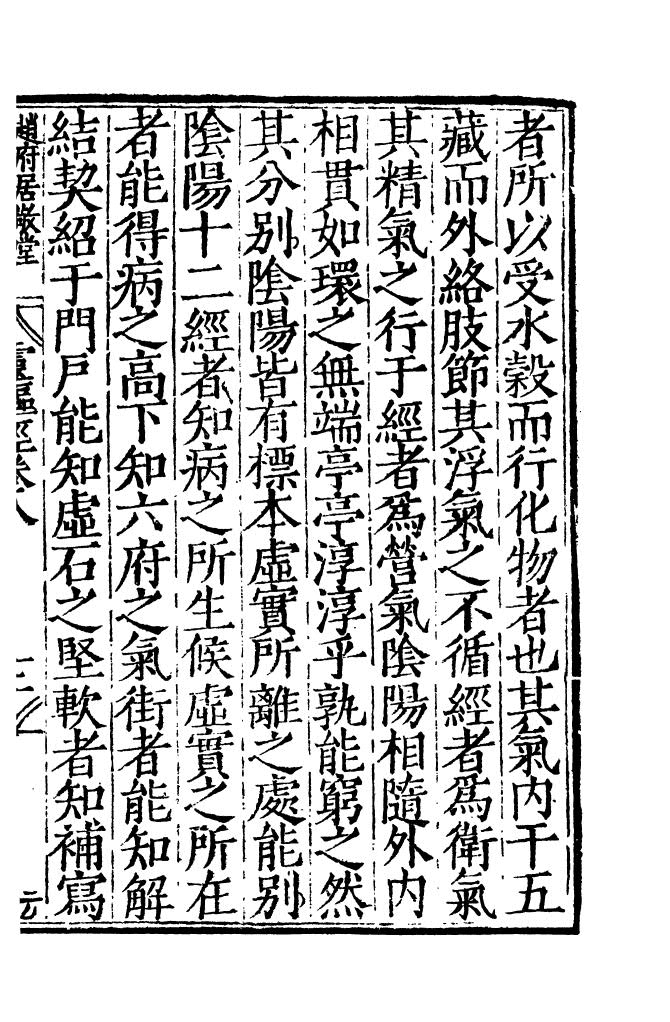 者所以受水穀而行化物者也其氣内干五
藏而外絡肢節其浮氣之不循經者爲衛氣
其精氣之行于經者爲營氣陰陽相隨外内
相貫如環之無端亭亭淳淳乎孰能窮之然
其分别陰陽皆有標本虛實所離之處能别
陰陽十二經者知病之所生候虛實之所在
者能得病之高下知六府之氣街者能知解
結契紹于門戶能知虛石之堅軟者知補寫
趙府居敬堂
靈樞經卷八